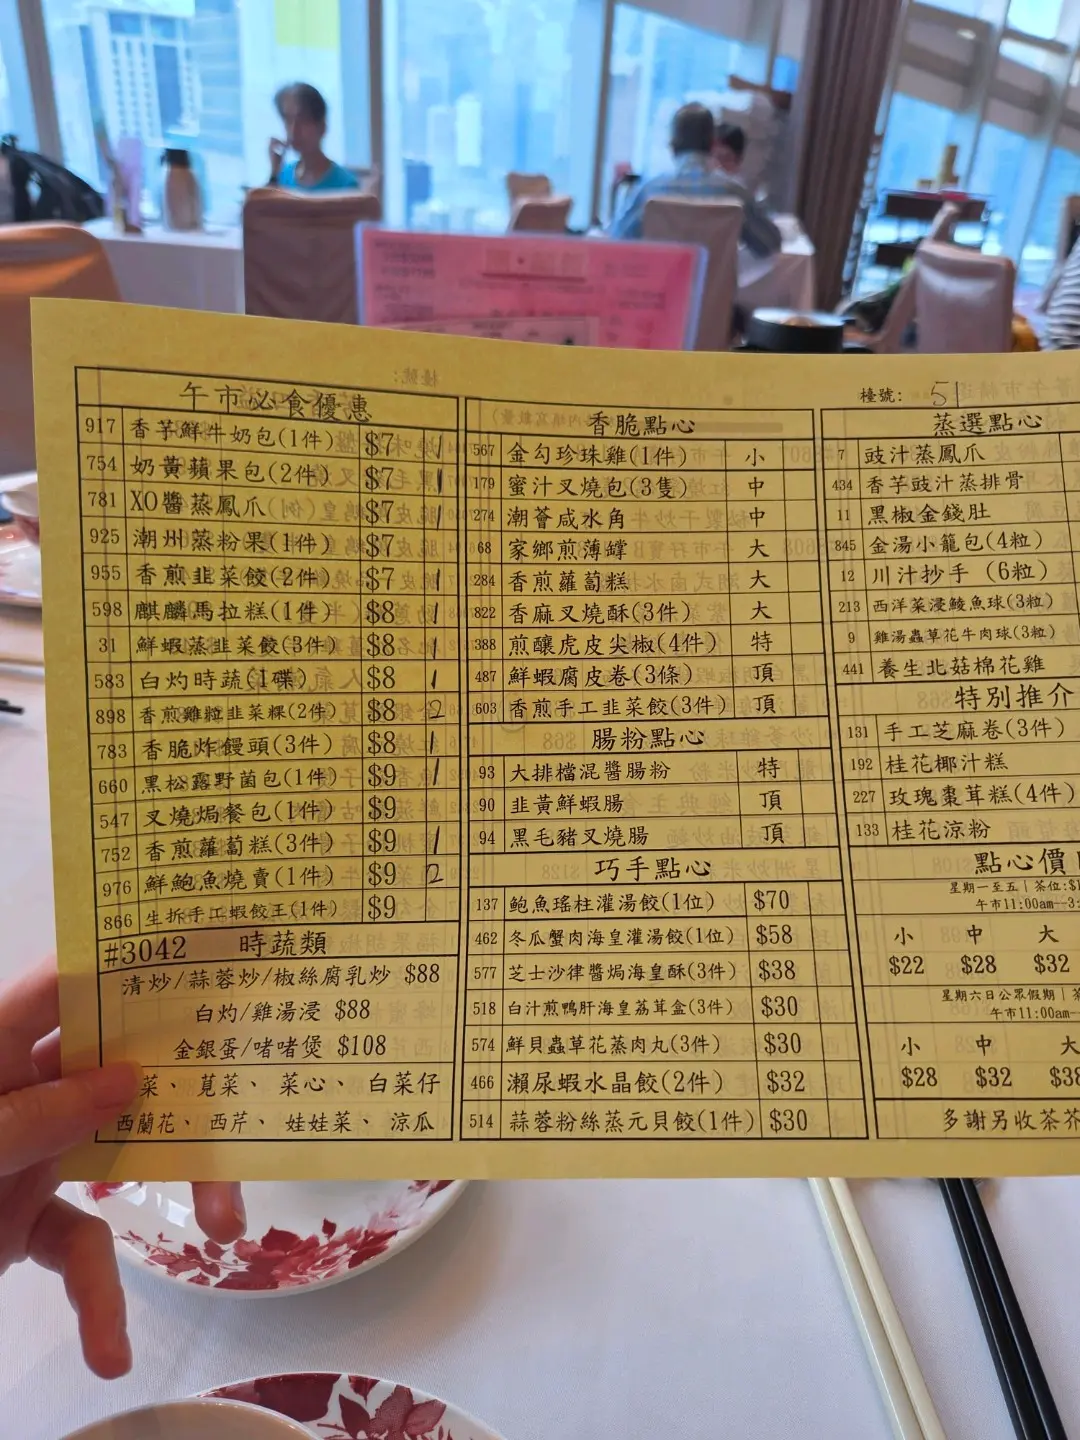 檯號: 51
午市必食優惠
917 香芋鮮牛奶包(1件) $7 1
754 奶黃蘋果包(2件) $7 1
781 XO醬蒸鳳爪 $7 1
925 潮州蒸粉果(1件) $7
955 香煎韭菜餃(2件) $7 1
598 麒麟馬拉糕(1件) $8 1
31 鮮蝦蒸韭菜餃(3件) $8 1
583 白灼時蔬(1碟) $8 1
898 香煎雞粒韭菜粿(2件) $8 2
783 香脆炸饅頭(3件) $8 1
660 黑松露野菌包(1件) $9 1
547 叉燒焗餐包(1件) $9
752 香煎蘿蔔糕(3件) $9 1
976 鮮鮑魚燒賣(1件) $9 2
866 生拆手工蝦餃王(1件) $9
#3042 時蔬類
清炒/蒜蓉炒/椒絲腐乳炒 $88
白灼/雞湯浸 $88
金銀蛋/啫啫煲 $108
菜、莧菜、菜心、白菜仔
西蘭花、西芹、娃娃菜、涼瓜
香脆點心
567 金勾珍珠雞(1件) 小
179 蜜汁叉燒包(3隻) 中
274 潮薈咸水角 中
68 家鄉煎薄罉 大
284 香煎蘿蔔糕 大
822 香麻叉燒酥(3件) 大
388 煎釀虎皮尖椒(4件) 特
487 鮮蝦腐皮卷(3條) 頂
603 香煎手工韭菜餃(3件) 頂
腸粉點心
93 大排檔混醬腸粉 特
90 韭黃鮮蝦腸 頂
94 黑毛豬叉燒腸 頂
巧手點心
137 鮑魚瑤柱灌湯餃(1位) $70
462 冬瓜蟹肉海皇灌湯餃(1位) $58
577 芝士沙律醬焗海皇酥(3件) $38
518 白汁煎鴨肝海皇荔茸盒(3件) $30
574 鮮貝蟲草花蒸肉丸(3件) $30
466 瀨尿蝦水晶餃(2件) $32
514 蒜蓉粉絲蒸元貝餃(1件) $30
蒸選點心
7 豉汁蒸鳳爪
434 香芋豉汁蒸排骨
11 黑椒金錢肚
845 金湯小籠包(4粒)
12 川汁抄手 (6粒)
213 西洋菜浸鯪魚球(3粒)
9 雞湯蟲草花牛肉球(3粒)
441 養生北菇棉花雞
特別推介
131 手工芝麻卷(3件)
192 桂花椰汁糕
227 玫瑰棗茸糕(4件)
133 桂花涼粉
點心價
星期一至五 | 茶位:$
午市11:00am--3:
小 中 大
$22 $28 $32
星期六日公眾假期 |
午市11:00am--
小 中 大
$28 $32 $38
多謝另收茶芥